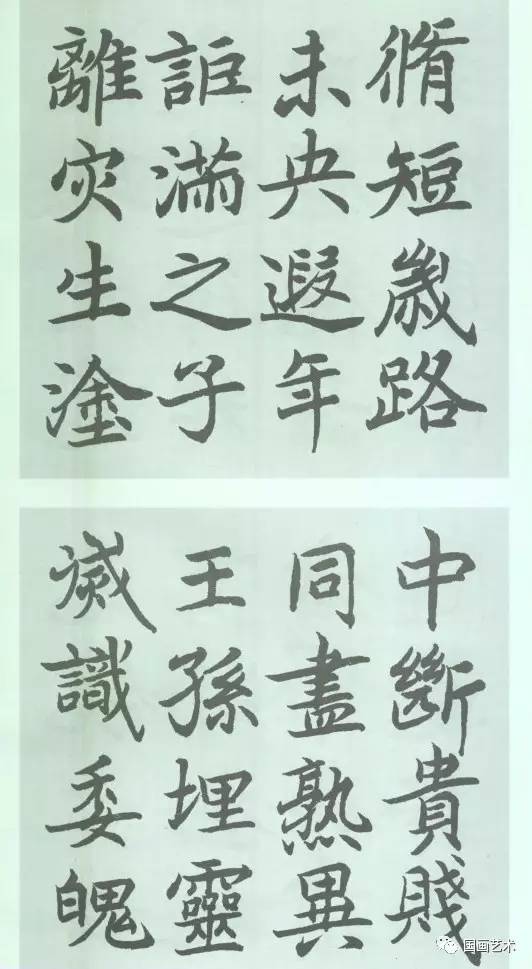 脩短歲路
未央遐年
詎滿之子
離灾生塗
中斷貴賤
同盡熟異
王孫埋靈
滅識委魄
国画艺术